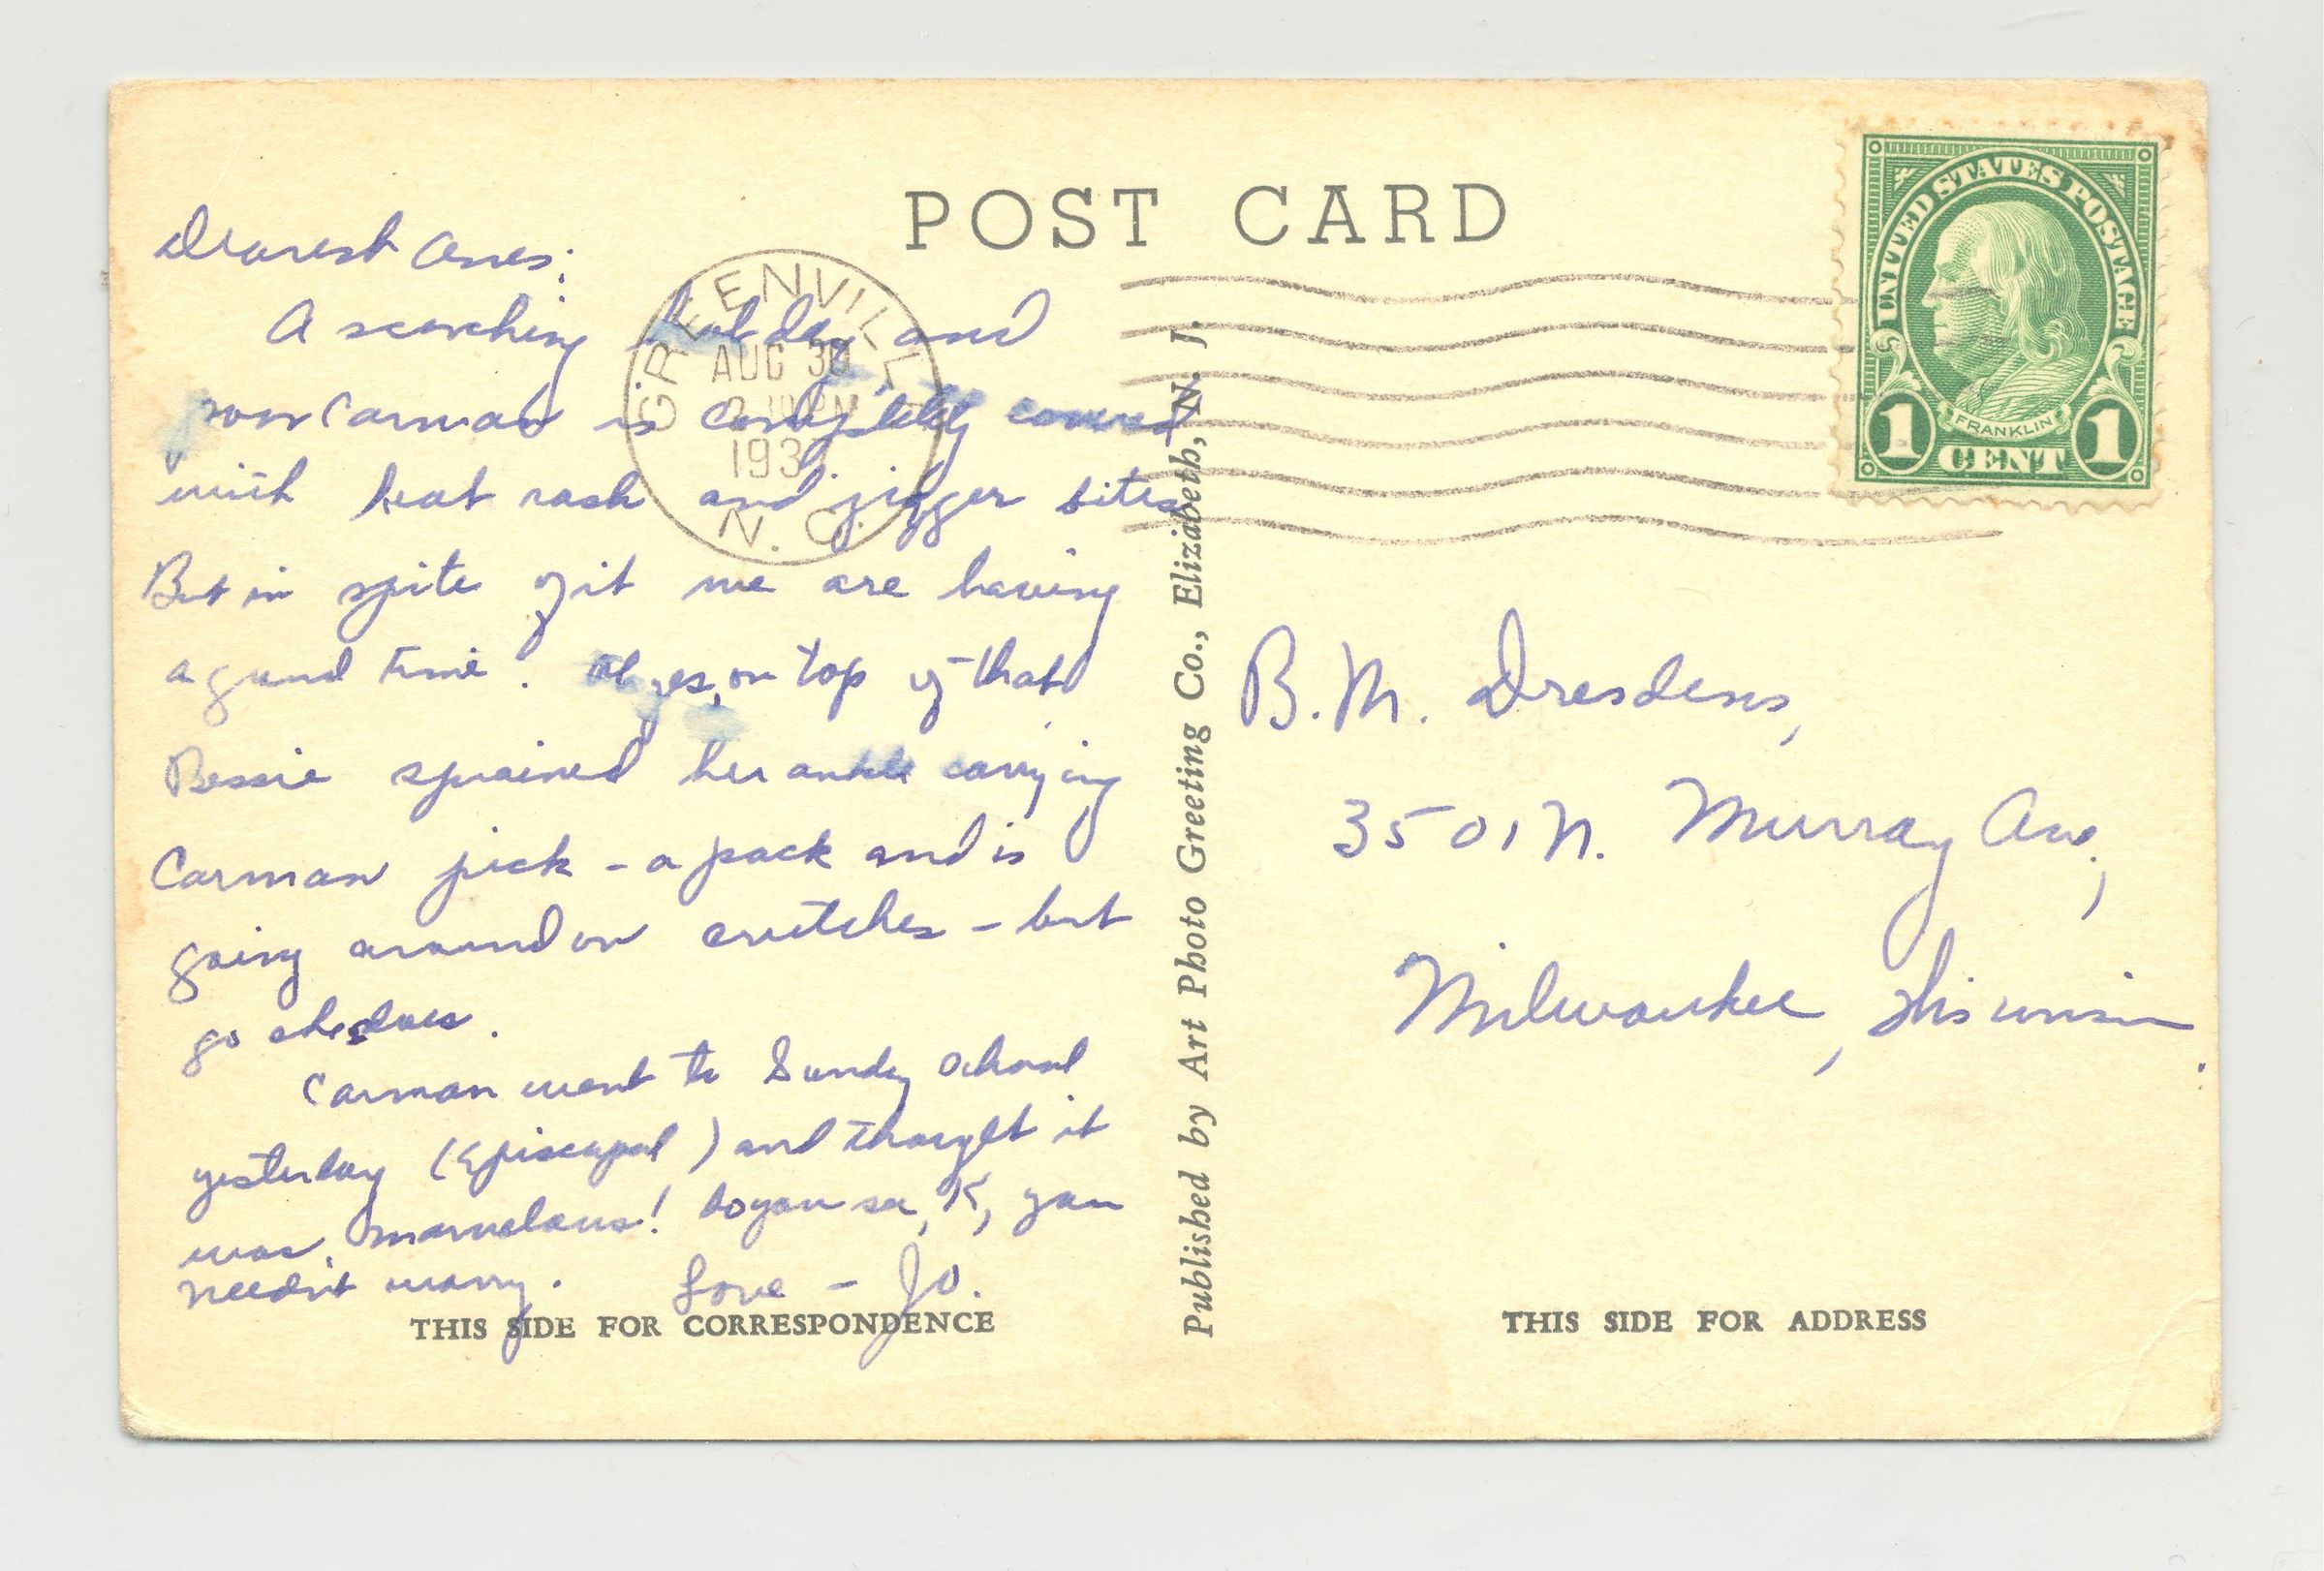 POST CARD
Dearest Ones:
A scorching hot day and
poor Carman is completely covered
with heat rash and jigger bites
But in spite of it we are having
a grand time. Oh yes, on top of that
Bessie sprained her ankle carrying
Carman pick-a pack and is
going around on crutches - but
go she does.
Carman went to Sunday School
yesterday (Episcopal) and thought it
was marvelous! So you see, K, you
needn't worry. Love - Jo.
THIS SIDE FOR CORRESPONDENCE
GREENVILLE
AUG 30
PM
193
N. C.
Published by Art Photo Greeting Co., Elizabeth, N. J.
UNITED STATES POSTAGE
FRANKLIN
1 CENT 1
B. M. Dresdens,
3501 N. Murray Ave,
Milwaukee, Wisconsin.
THIS SIDE FOR ADDRESS